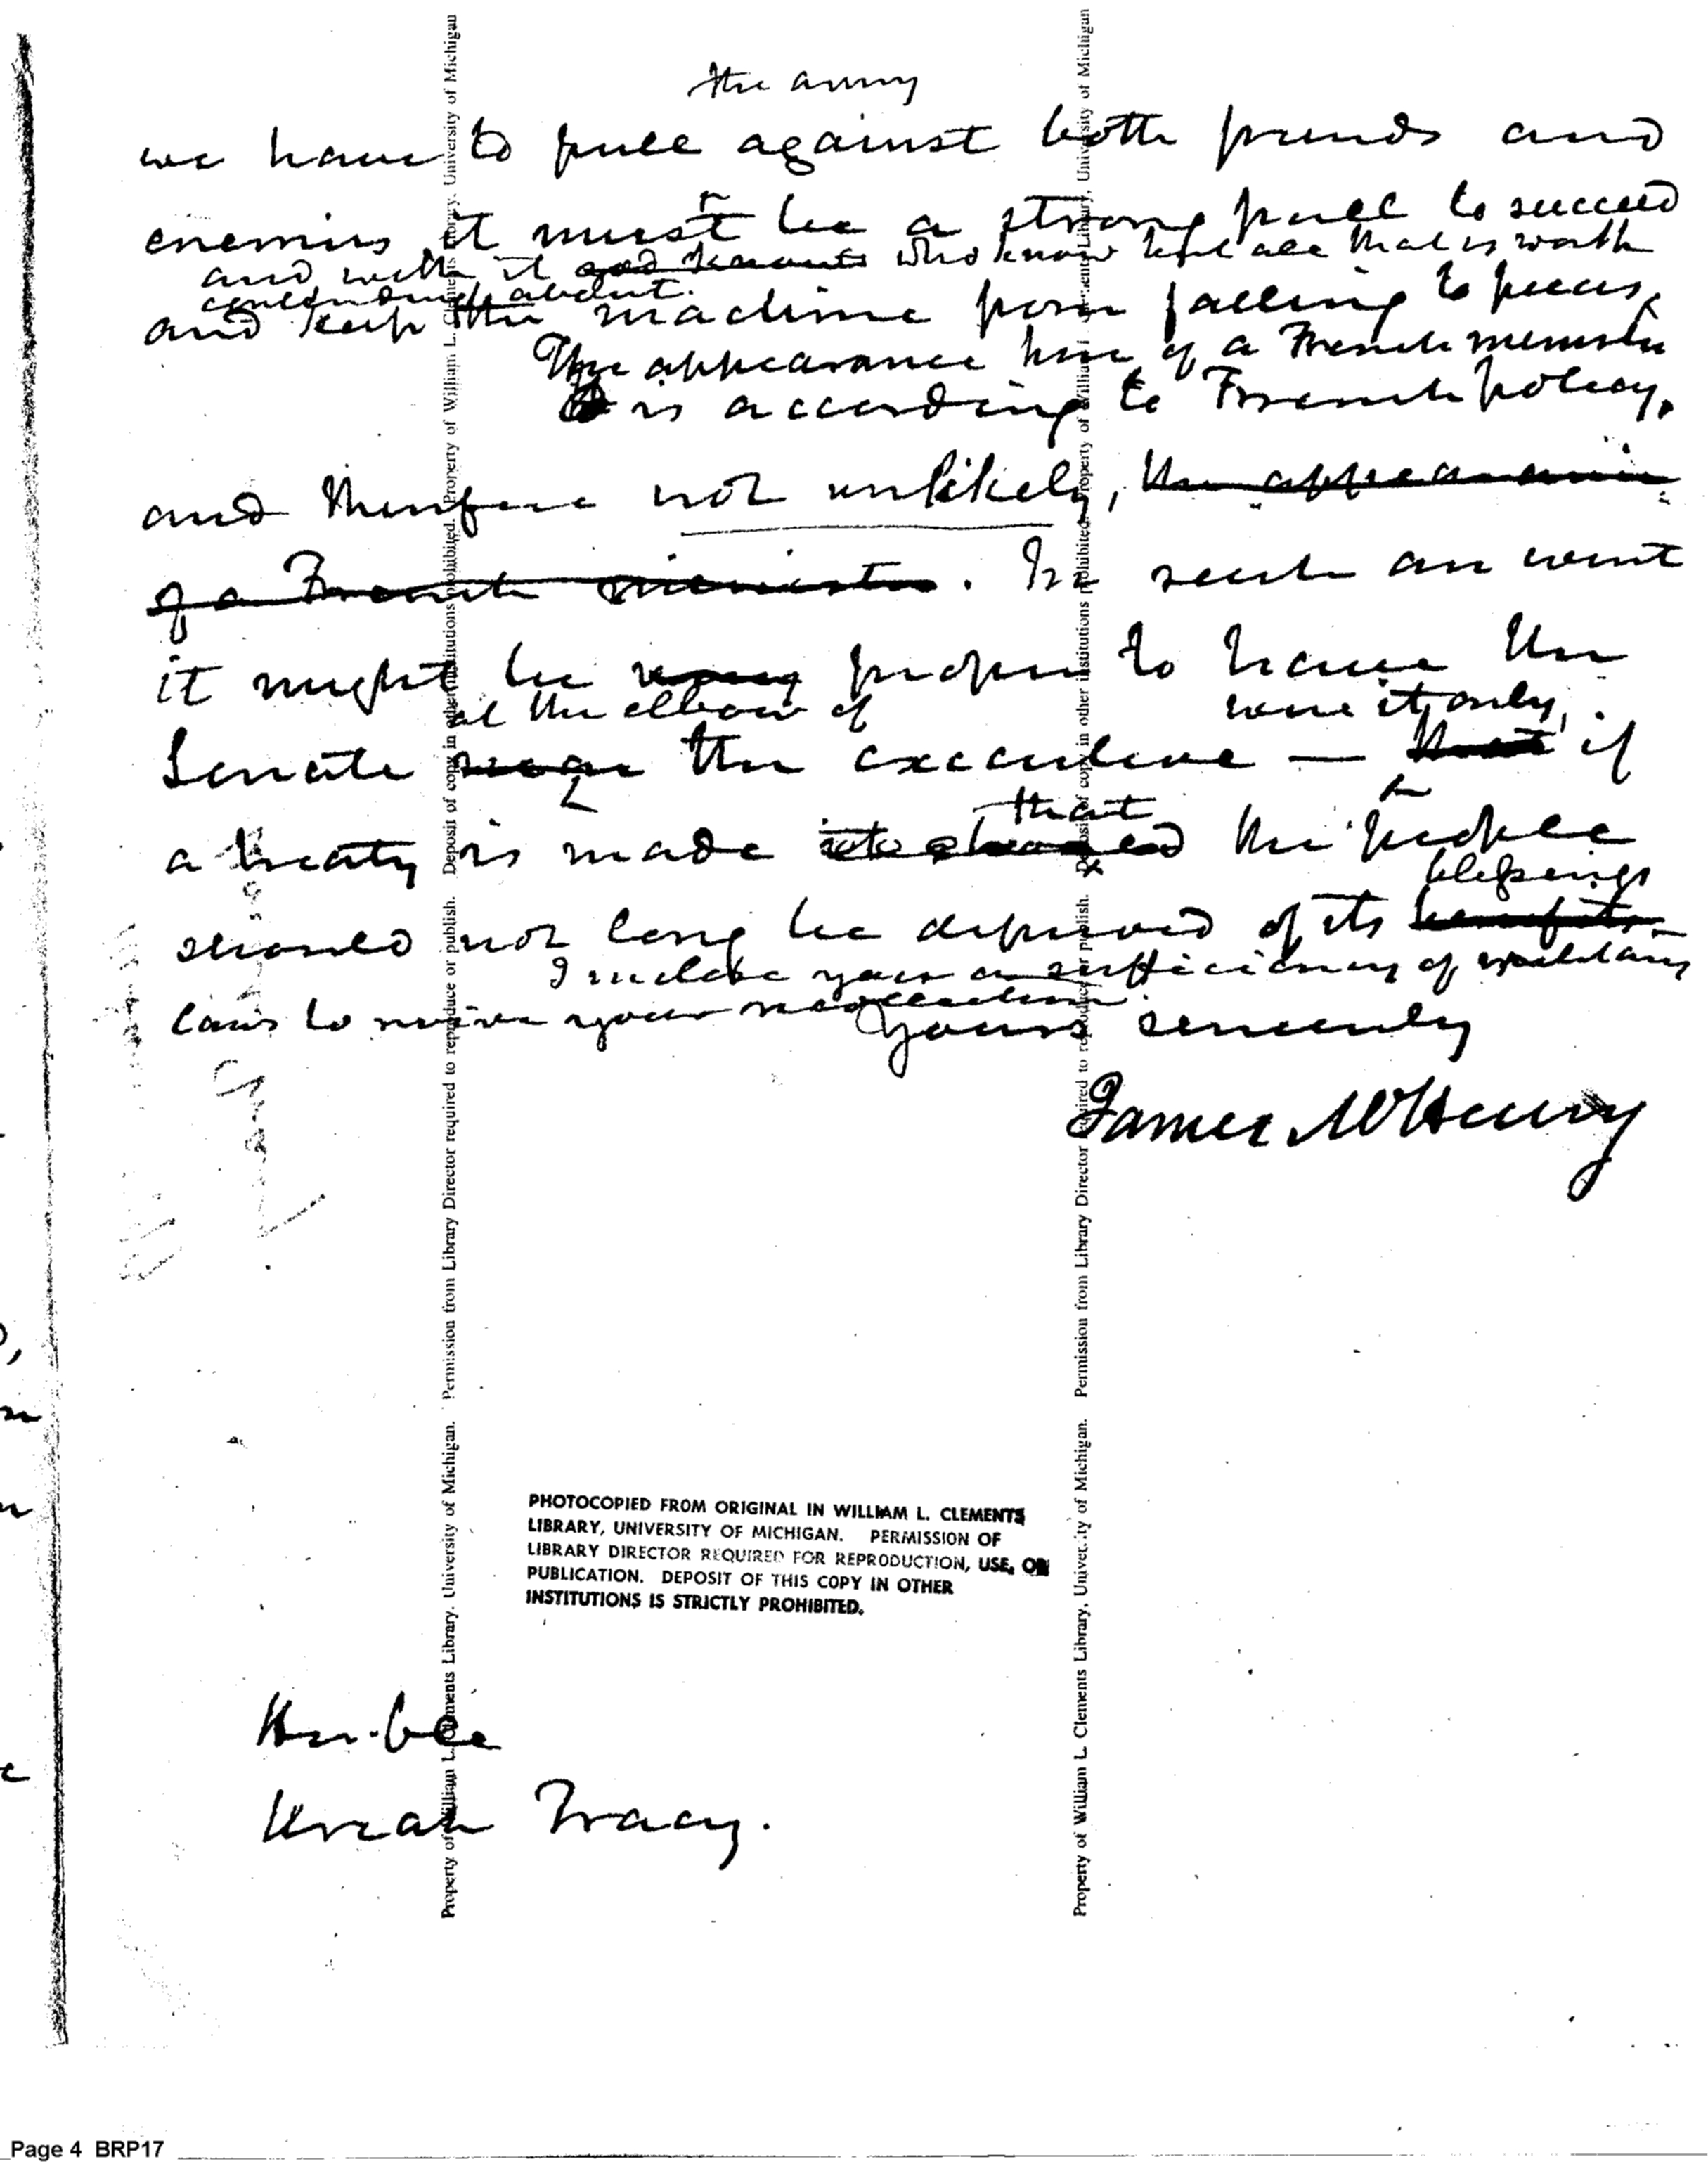 the army
we have to pull against both friends and
enemies it must be a strong pull to succeed
and with it who know that all that is worth
about.
and keep the machine from falling to pieces.
The appearance here of a French minister
is according to French policy,
and therefore not unlikely, the appearance
of a French minister. In such an event
it might be very proper to have the
at the elbow of were it only,
Senate near the executive — that if
that
a treaty is made the people
blessings
should not long be deprived of its benefits
I inclose you a sufficiency of military
laws to revive your recollection.
Yours sincerely
James McHenry
PHOTOCOPIED FROM ORIGINAL IN WILLIAM L. CLEMENTS
LIBRARY, UNIVERSITY OF MICHIGAN. PERMISSION OF
LIBRARY DIRECTOR REQUIRED FOR REPRODUCTION, USE, OR
PUBLICATION. DEPOSIT OF THIS COPY IN OTHER
INSTITUTIONS IS STRICTLY PROHIBITED.
Hon.ble
Uriah Tracy.
Property of William L. Clements Library, University of Michigan. Permission from Library Director required to reproduce or publish. Deposit of copy in other institutions prohibited. Property of William L. Clements Library, University of Michigan
Property of William L. Clements Library, University of Michigan. Permission from Library Director required to reproduce or publish. Deposit of copy in other institutions prohibited. Property of William L. Clements Library, University of Michigan
Page 4 BRP17